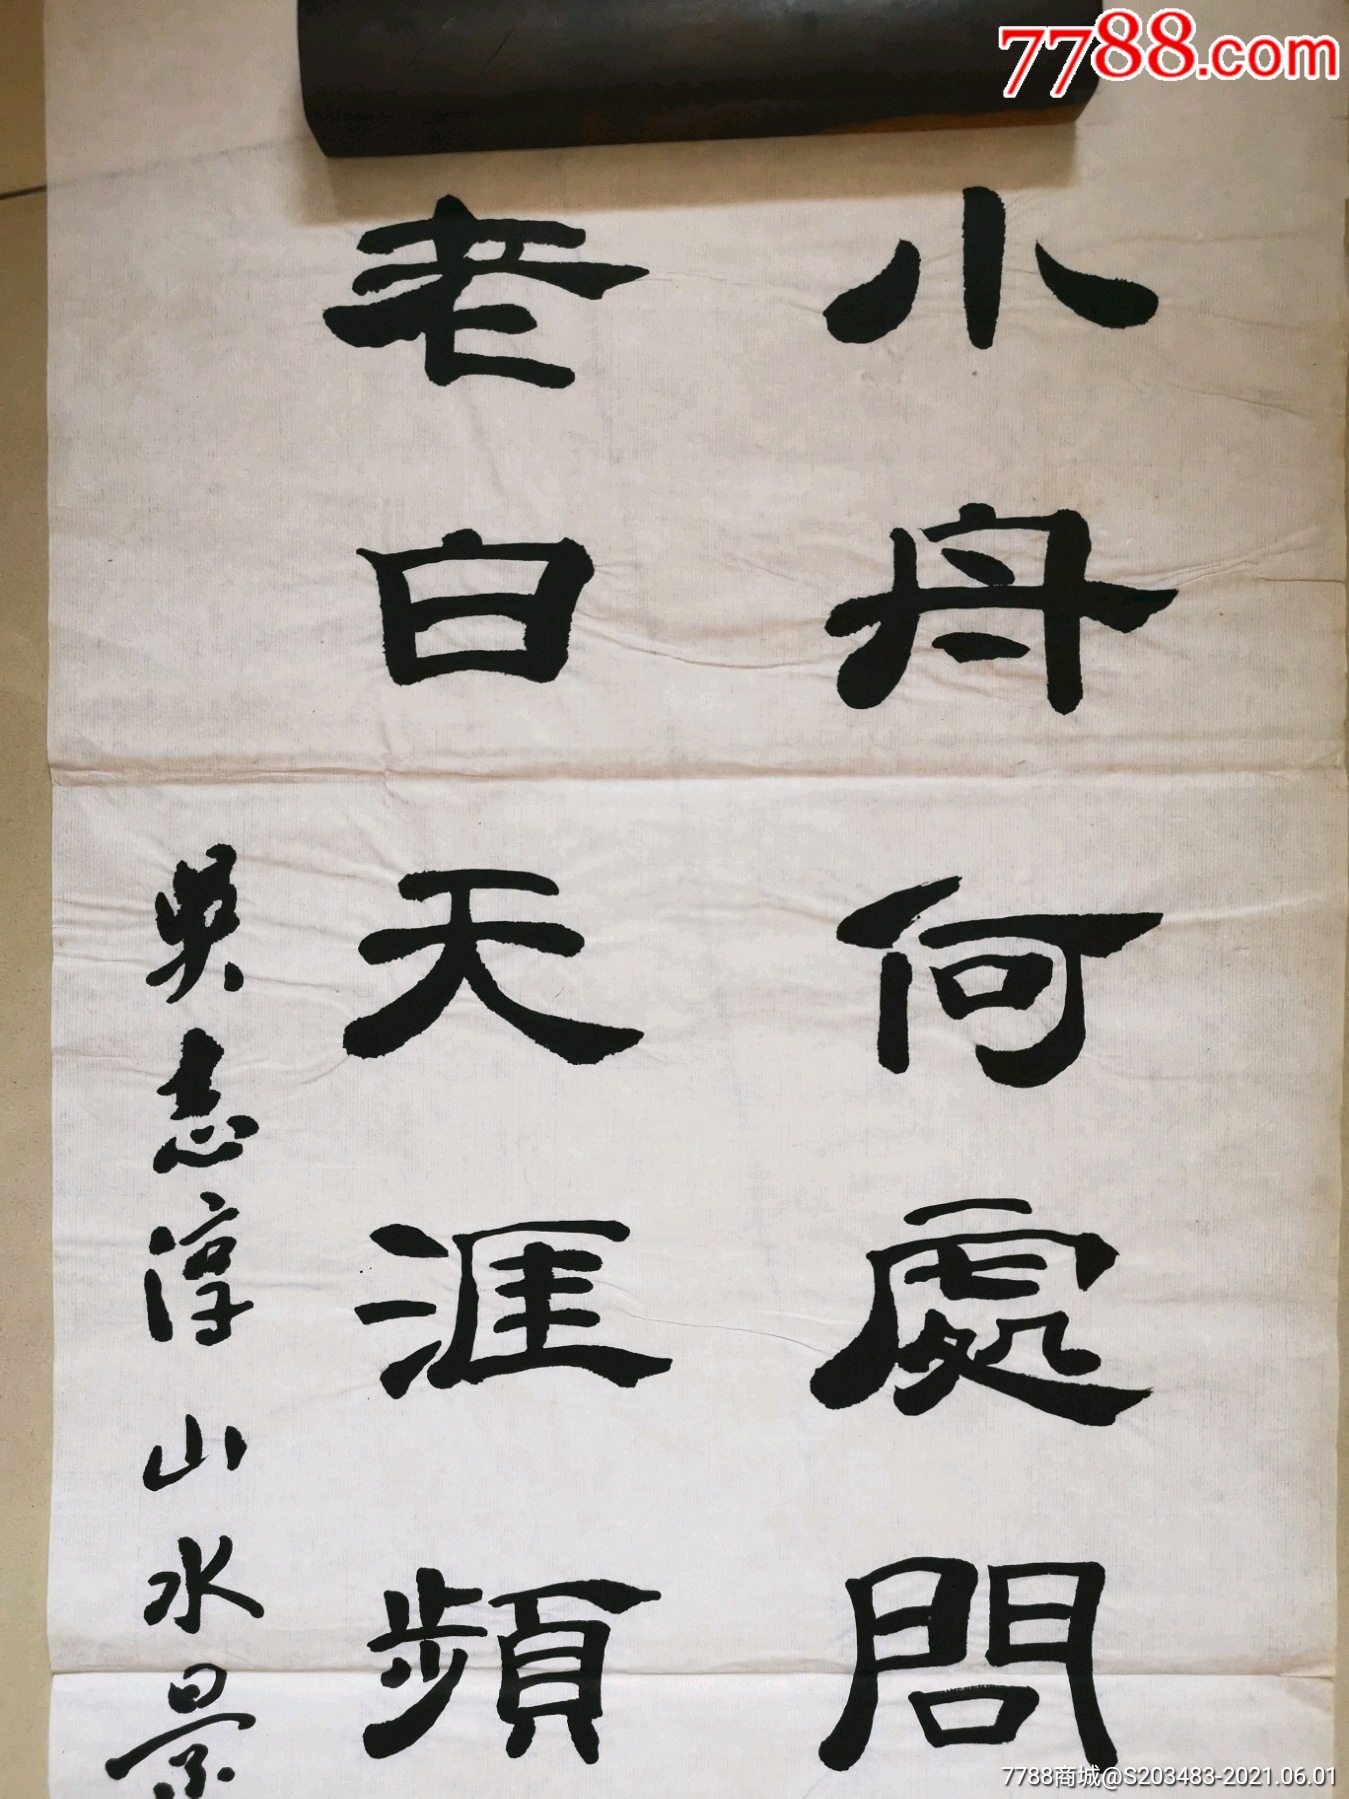 7788.com
小舟何處問
老白天涯頻
吳志淳山水景
7788商城@S203483-2021.06.01